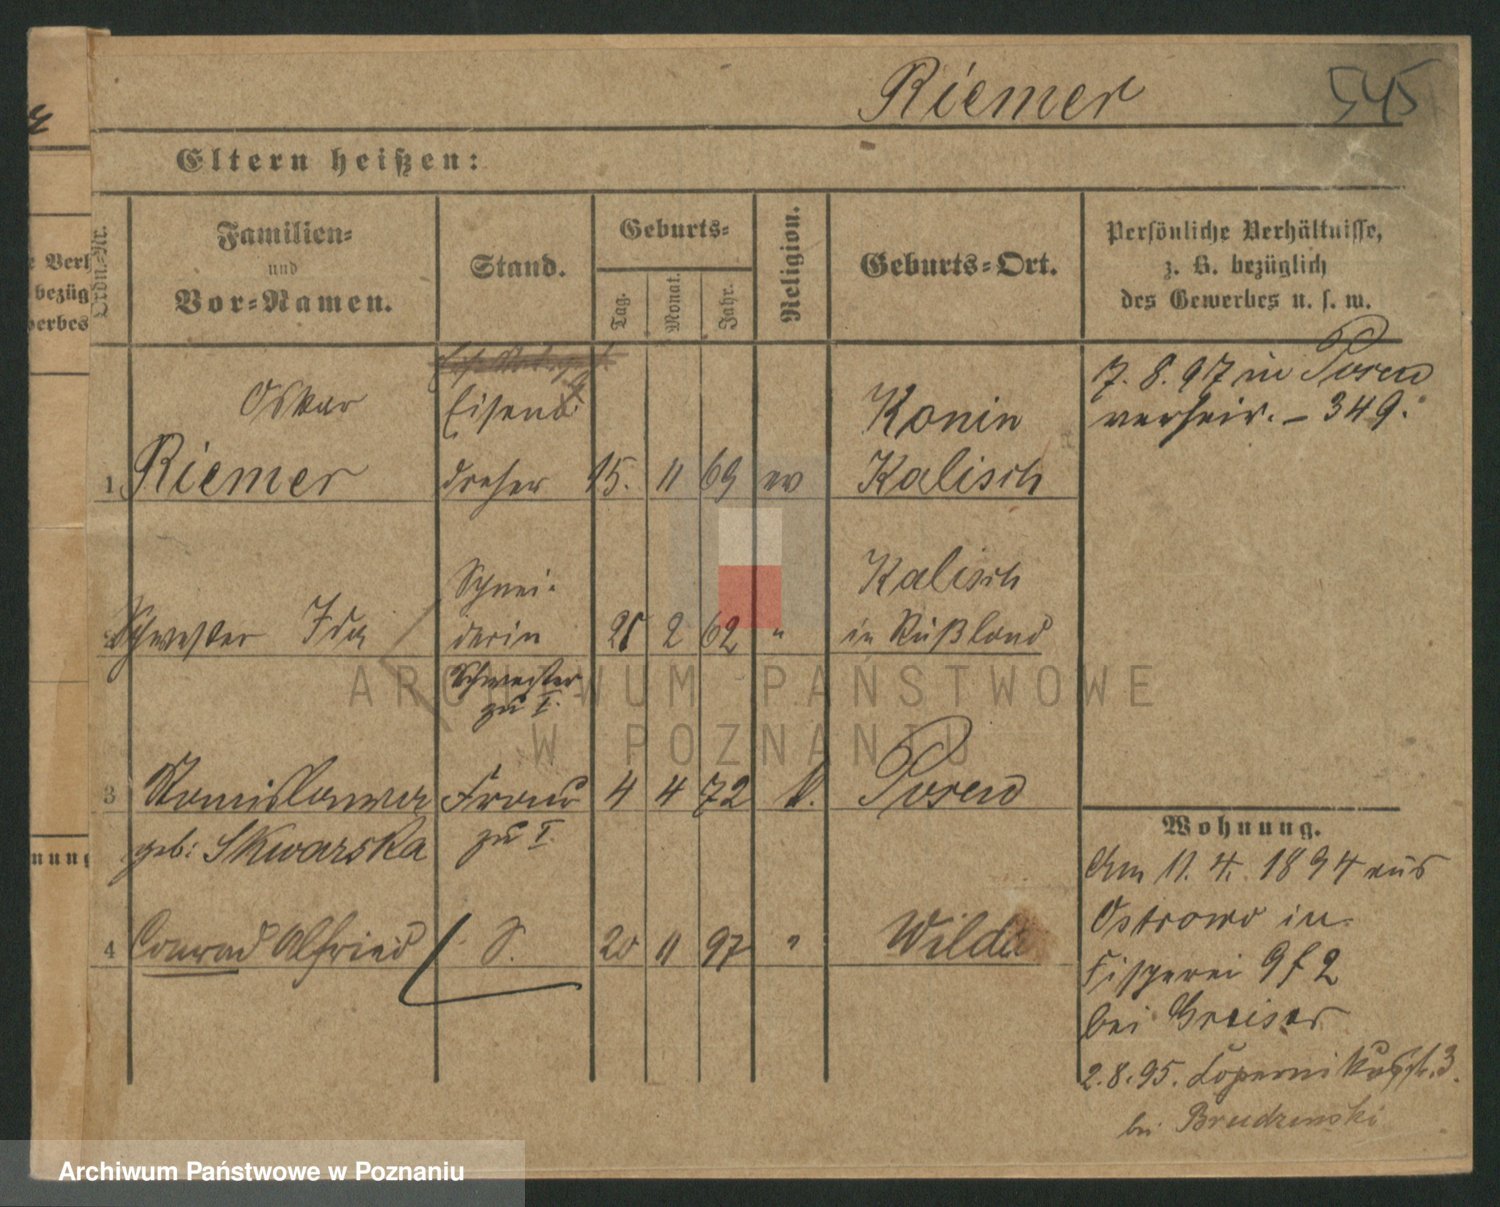 Riemer 545
Eltern heißen:
Ordn.-Nr.
Familien-
und
Vor-Namen.
Stand.
Geburts-
Tag. Monat. Jahr.
Religion.
Geburts-Ort.
Persönliche Verhältnisse,
z. B. bezüglich
des Gewerbes u. s. w.
Oskar Eisen- Konin 7. 8. 97 in Posen
verheir. – 349.
1 Riemer dreher 15. 11 69 ev Kalisch
Schnei- Kalisch
2 Schwester Ida derin 21 2 62 " in Rußland
Schwester
zu I.
3 Stanislawa Frau 4 4 72 k. Posen
geb: Skwarska zu I.
Wohnung.
Am 11. 4. 1894 aus
Ostrowo in
Fischerei 9 f 2
bei Greiser
2. 8. 95. Kopernikusstr. 3.
bei Brudzinski
4 Conrad Alfried S. 20 11 97 " Wilda
e Verh
bezüg
werbes
nung
ARCHIWUM PAŃSTWOWE
W POZNANIU
Archiwum Państwowe w Poznaniu